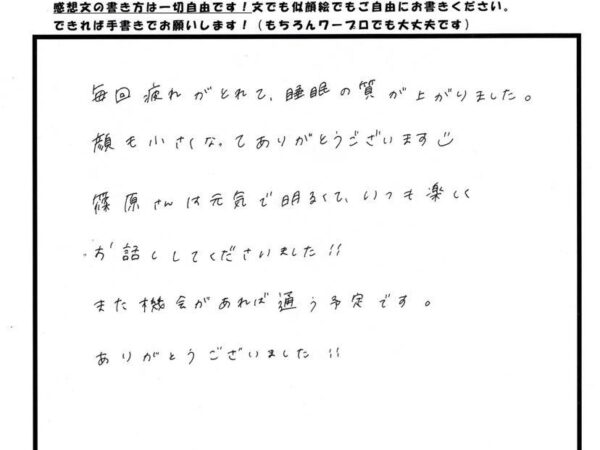 感想文の書き方は一切自由です！文でも似顔絵でもご自由にお書きください。
できれば手書きでお願いします！（もちろんワープロでも大丈夫です）
毎回疲れがとれて、睡眠の質が上がりました。
顔も小さくなってありがとうございます☺
篠原さんは元気で明るくて、いつも楽しく
お話ししてくださいました!!
また機会があれば通う予定です。
ありがとうございました!!